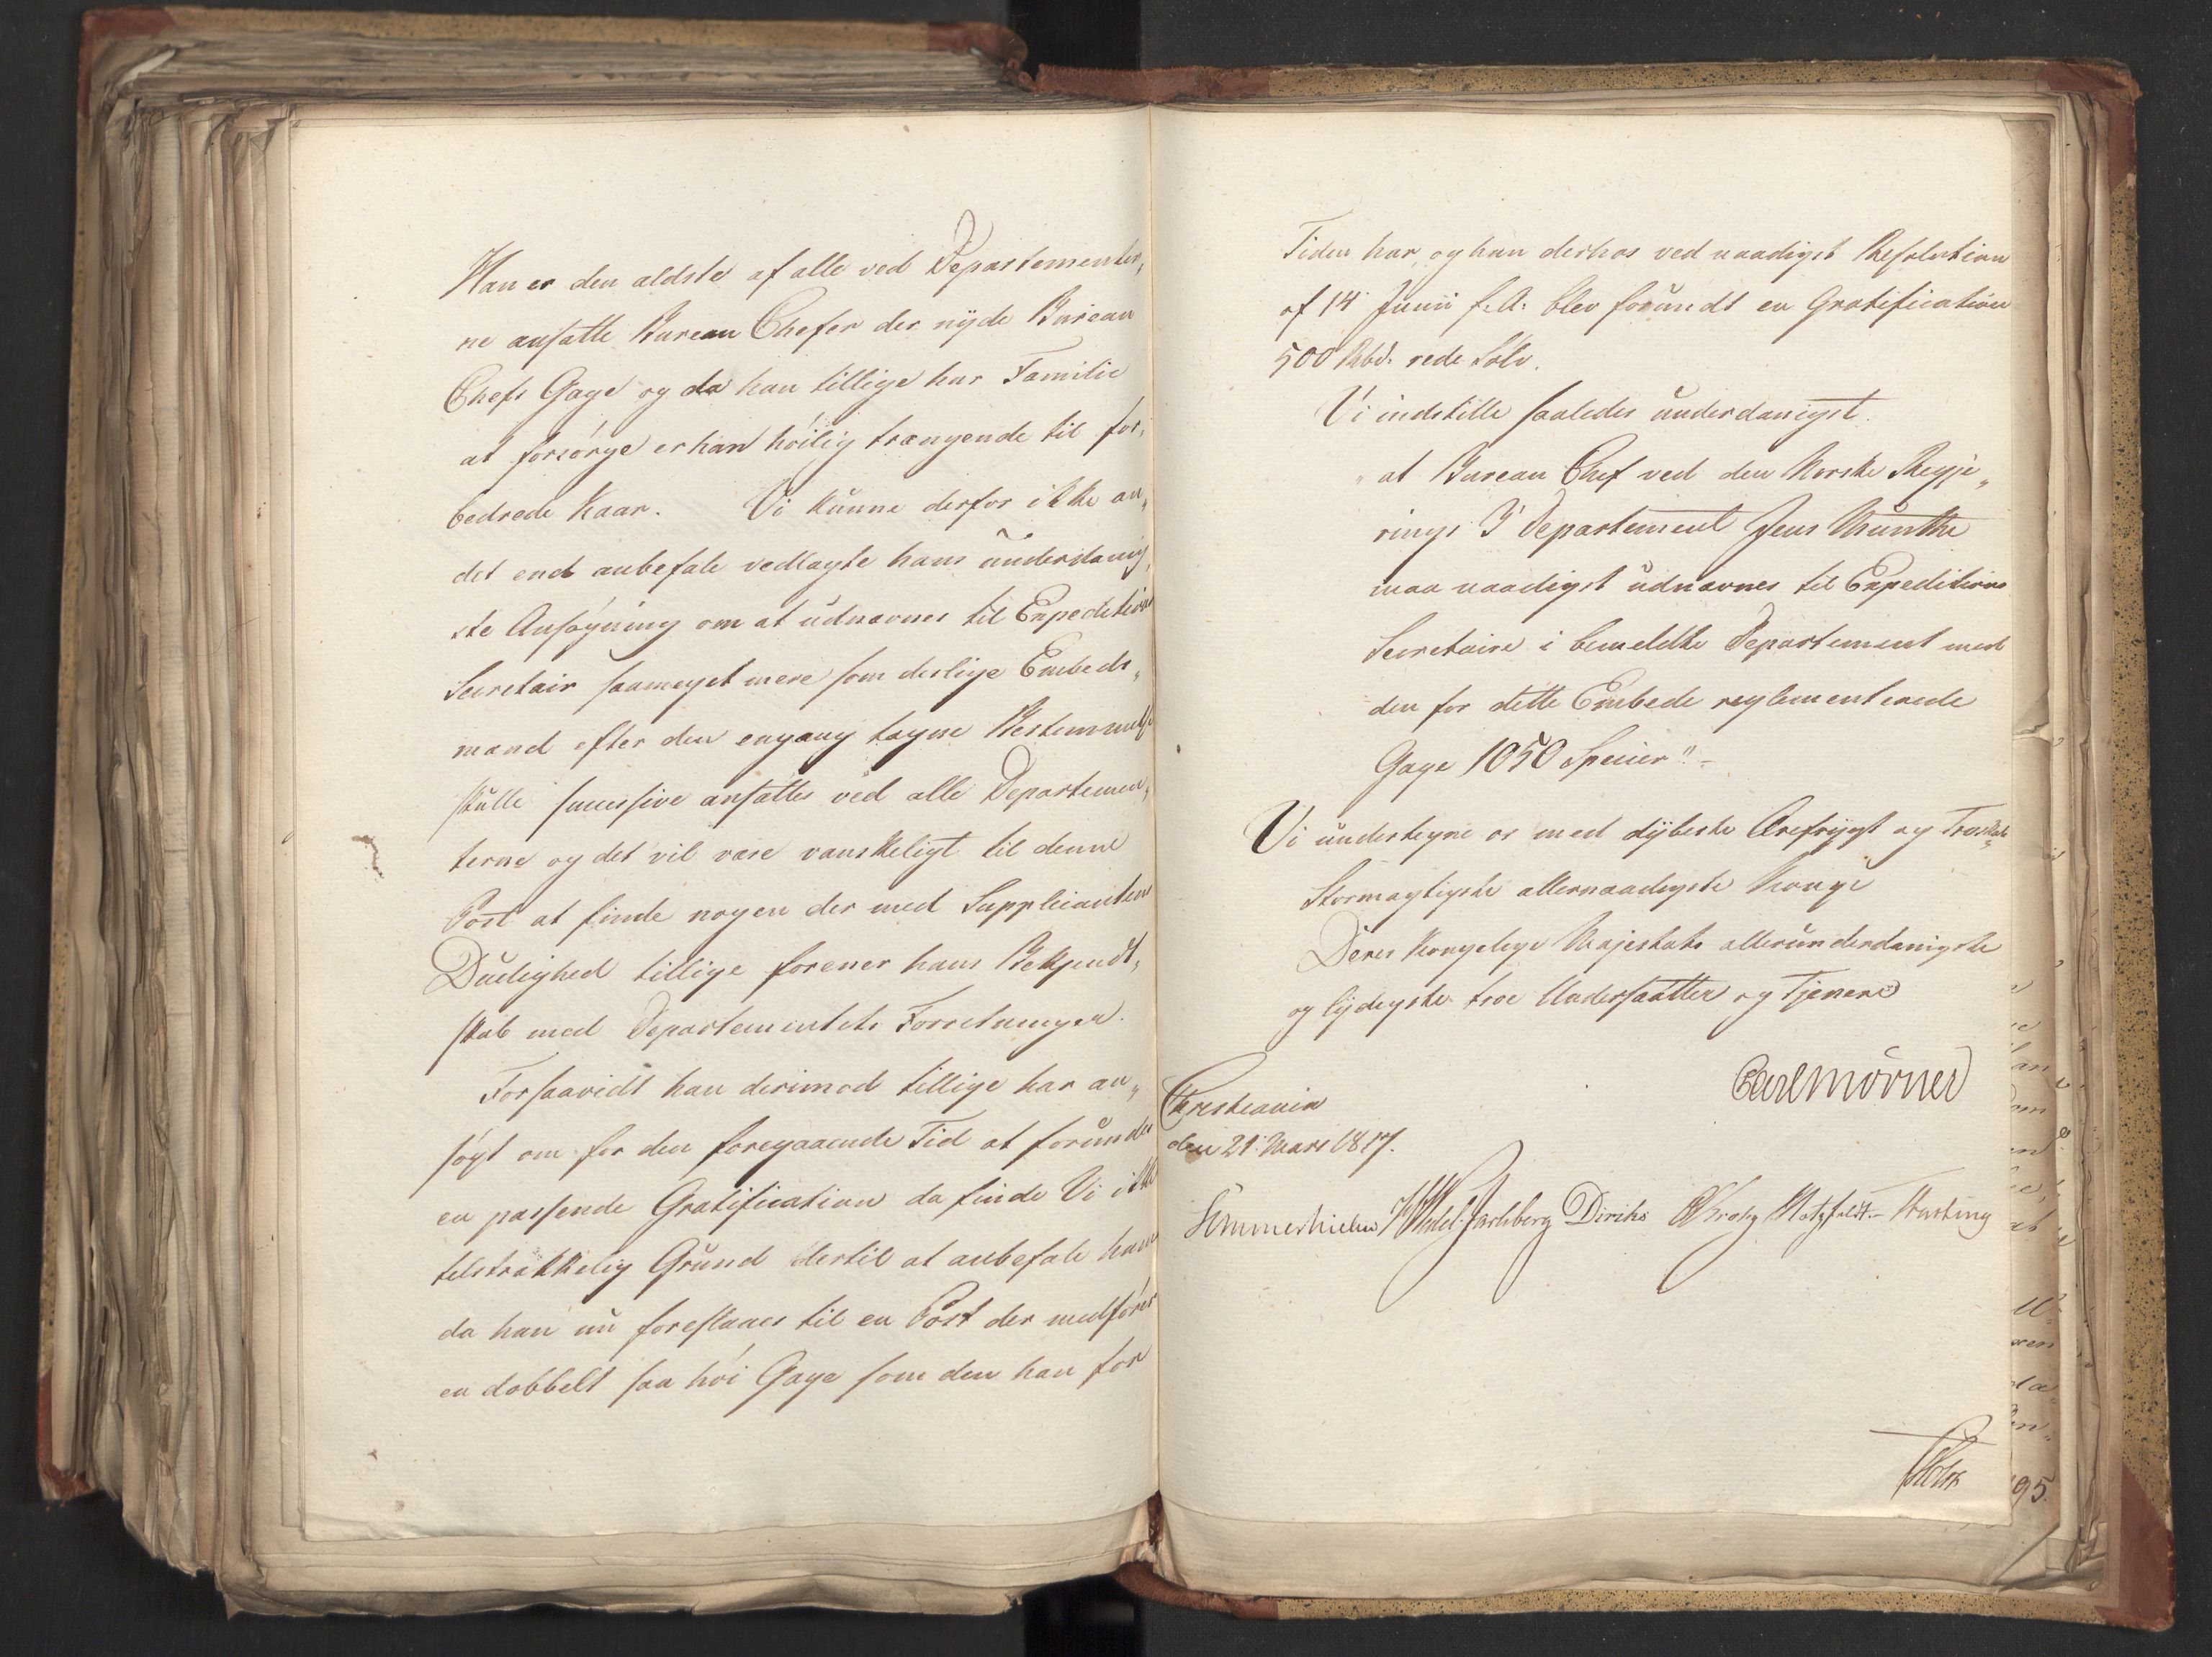 Han er den ældste af alle ved Departementer„
ne ansatte Bureau Chefer der nyde Bureau
Chefs Gage og da han tillige har Familie
at forsørge er han høilig trængende til for„
bedrede Kaar. Vi kunne derfor ikke an„
det end anbefale vedlagte hans underdanig„
ste Ansøgning om at udnævnes til Expeditions
Secretair saameget mere som deslige Embeds„
mænd efter den engang tagne Bestemmelse
skulle successive ansættes ved alle Departemen„
terne og det vil være vanskeligt til denne
Post at finde nogen der med Supplicantens
Duelighed tillige forener hans Bekjendt„
skab med Departementets Forretninger.
Forsaavidt han derimod tillige har an„
søgt om for den foregaaende Tid at forundes
en passende Gratification da finde Vi ikke
tilstrækkelig Grund dertil at anbefale ham
da han nu foreslaaes til en Post der medfører
en dobbelt saa høi Gage som den han for
Tiden har, og han derhos ved naadigst Resolution
af 14 Junii f: A: blev forundt en Gratification
500 Rbd. rede Sølv.
Vi indstille saaledes underdanigst.
„at Bureau Chef ved den Norske Regje„
rings 3 Departement Jens Munthe
maa naadigst udnævnes til Expeditions
Secretaire i bemeldte Departement med
den for dette Embede reglementerede
Gage 1050 Specier"–
Vi undertegne os med dybeste Ærefrygt og Troskab
Stormægtigste allernaadigste Konge
Deres Kongelige Majestæts allerunderdanigste
og lydigste troe Undersaatter og Tjenere
Carl Mörner
Christiania
den 21 Mars 1817.
Sommerhielm HWedel Jarlsberg Diriks CKrohg Motzfeldt– Hasting
Holst
95.